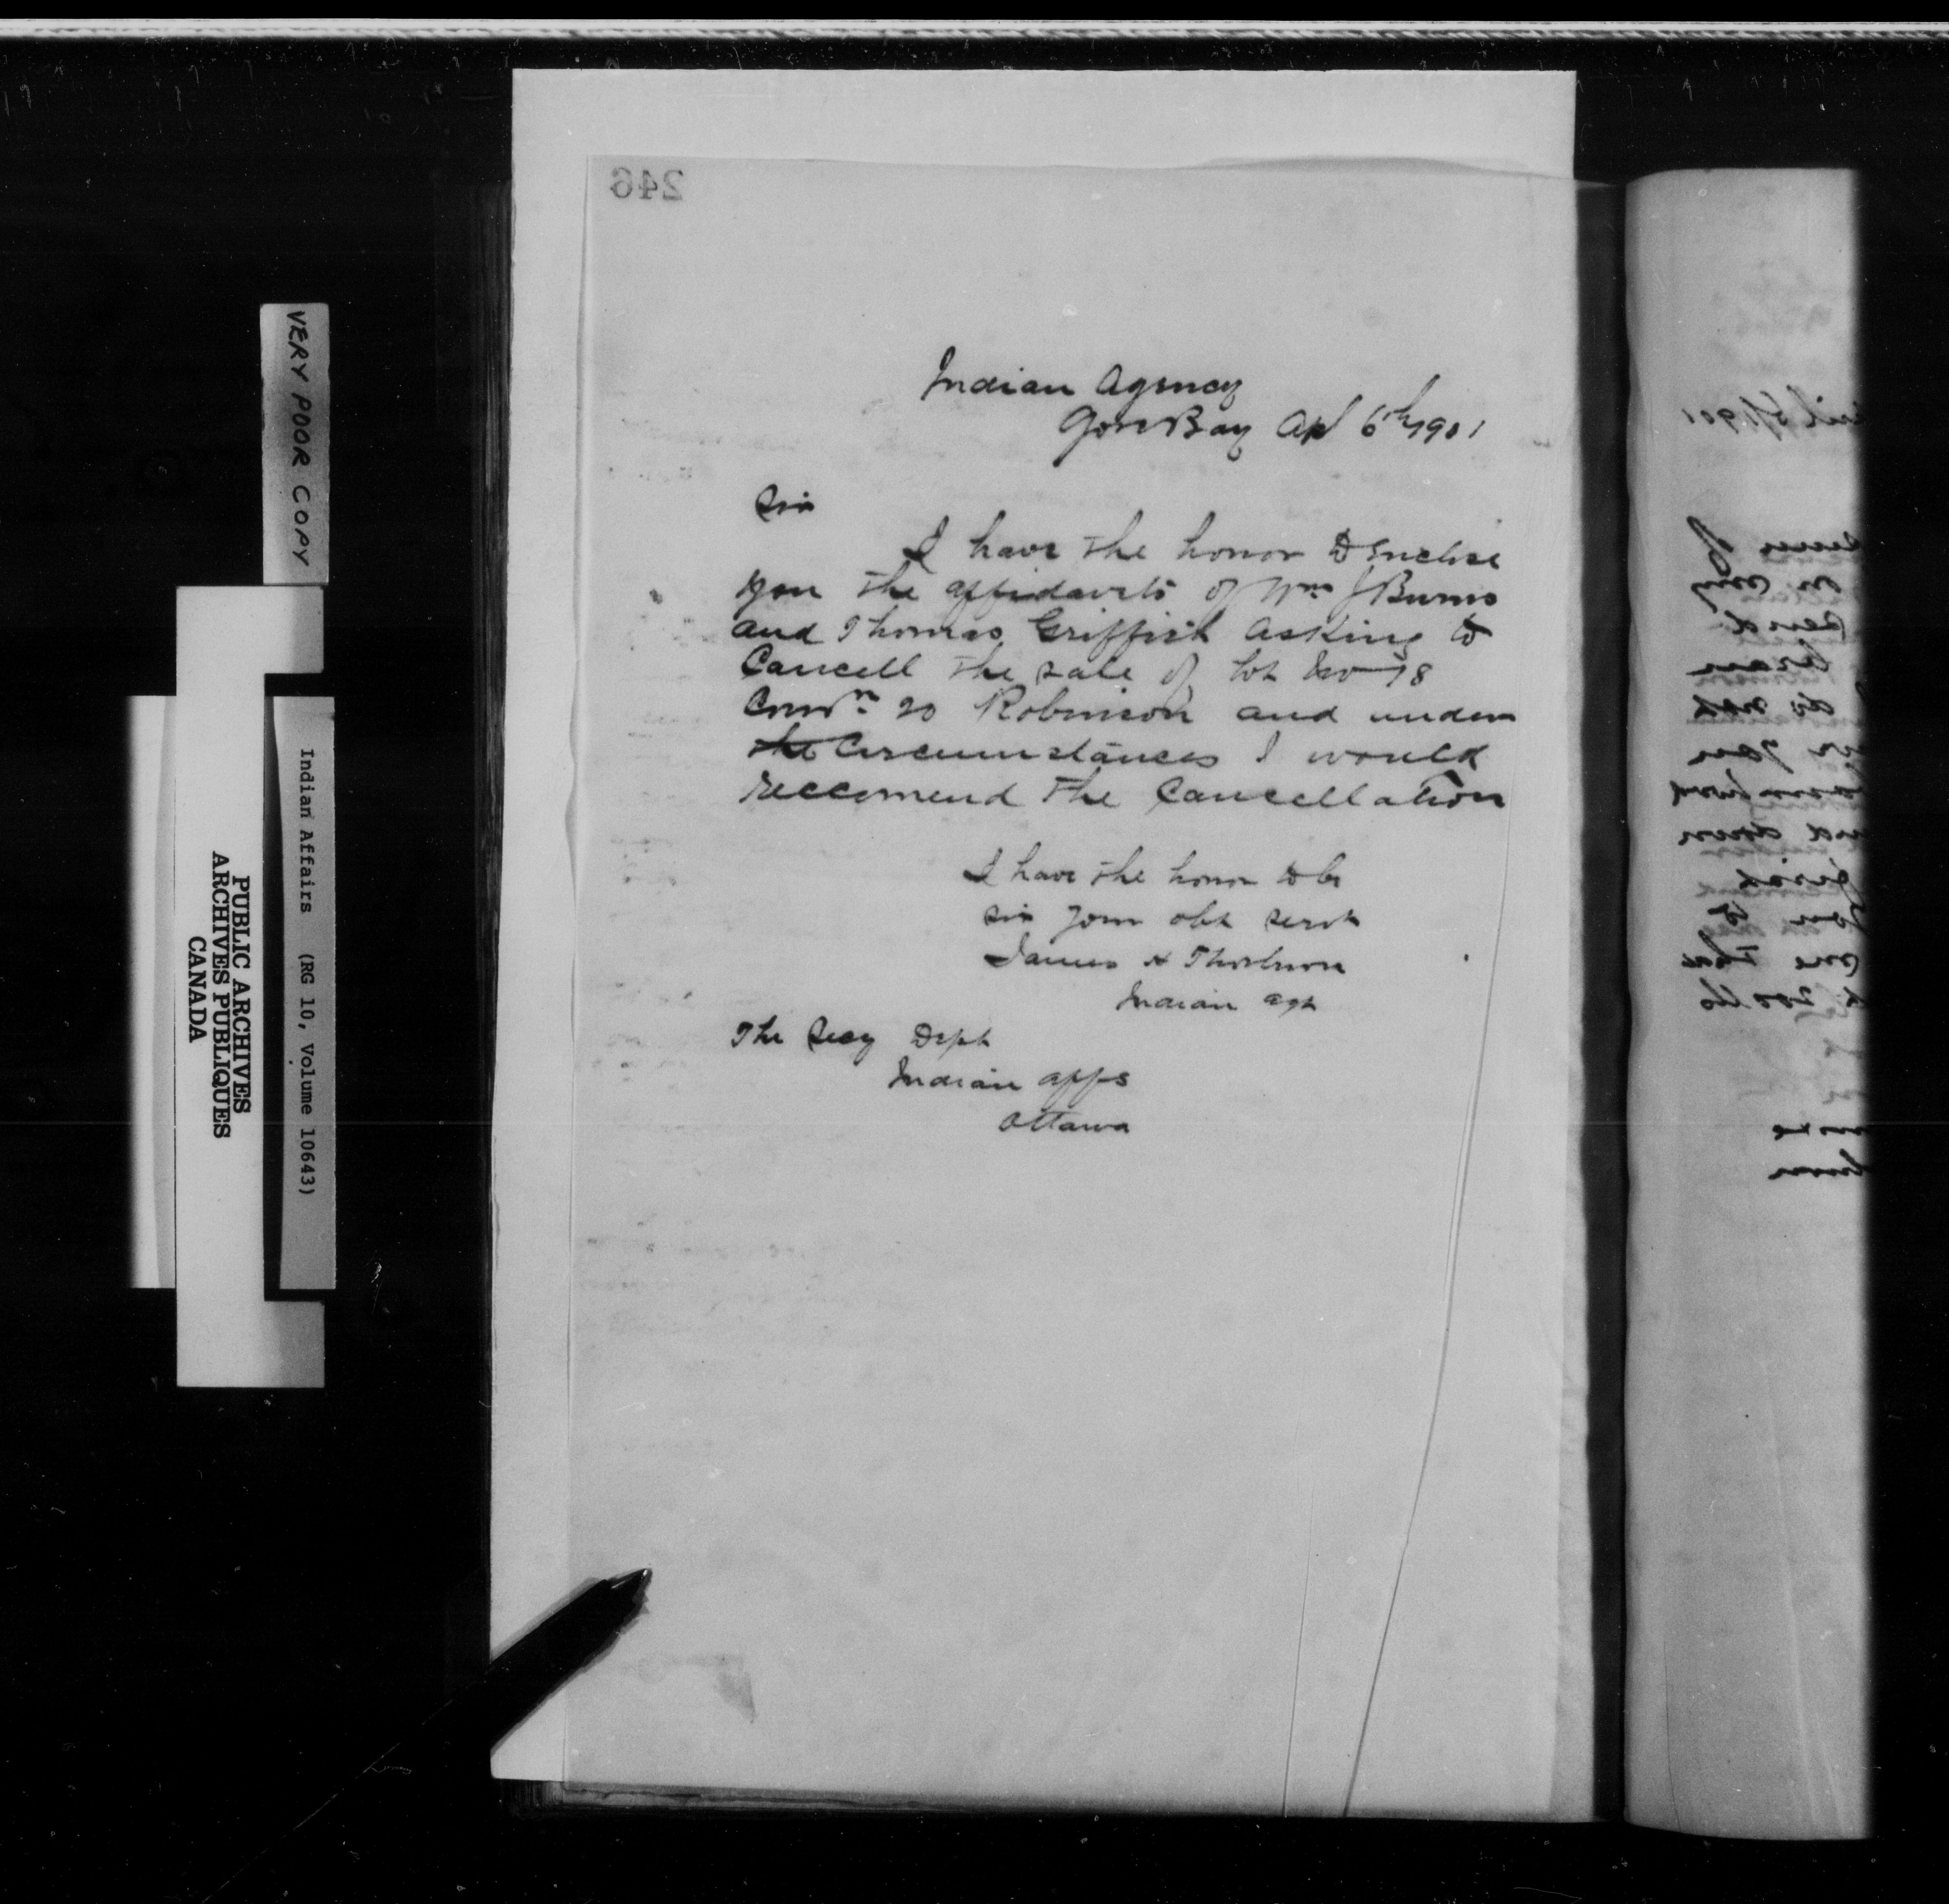 246
Indian Agency
Gore Bay Apl 6th 1901
Sir
I have the honor to Enclose
you the affidavits of Wm J Burns
and Thomas Griffith asking to
Cancell the sale of Lot No 18
Conn 20 Robinson and under
the Circumstances I would
reccomend the Cancellation
I have the honor to be
Sir your obt servt
James H Thorburn
Indian agt
The Secy Dept
Indian affs
Ottawa
VERY POOR COPY
Indian Affairs (RG 10, Volume 10643)
PUBLIC ARCHIVES
ARCHIVES PUBLIQUES
CANADA